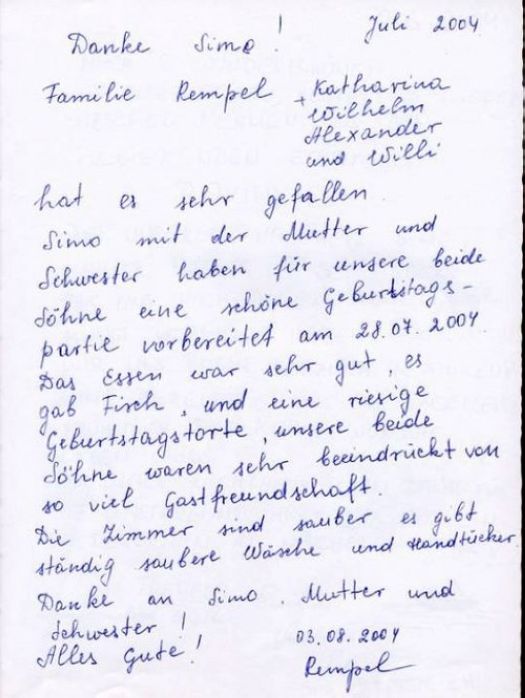 Juli 2004
Danke Simo!
Familie Rempel + Katharina
Wilhelm
Alexander
und Willi
hat es sehr gefallen.
Simo mit der Mutter und
Schwester haben für unsere beide
Söhne eine schöne Geburtstags-
partie vorbereitet am 28.07.2004
Das Essen war sehr gut, es
gab Firch, und eine riesige
Geburtstagstorte, unsere beide
Söhne waren sehr beeindrückt von
so viel Gastfreundschaft.
Die Zimmer sind sauber es gibt
ständig saubere Wäsche und Handtücker.
Danke an Simo, Mutter und
Schwester!
Alles Gute! 03.08.2004
Rempel